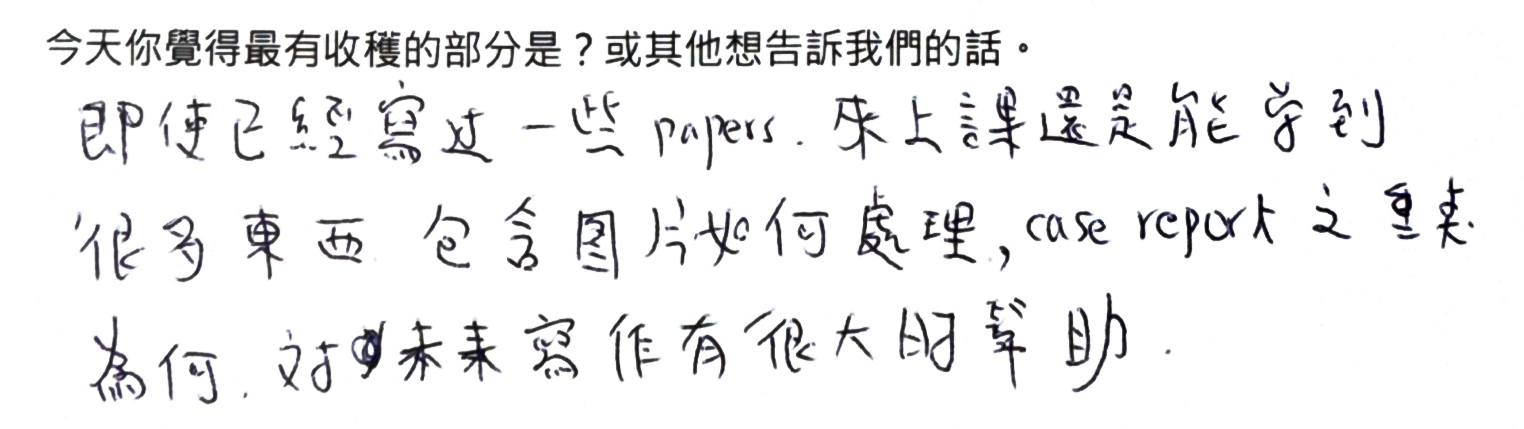 今天你覺得最有收穫的部分是？或其他想告訴我們的話。
即使已經寫过一些 papers. 來上課還是能学到
很多東西 包含图片如何處理, case report 之重点.
為何. 对未來寫作有很大的幫助.